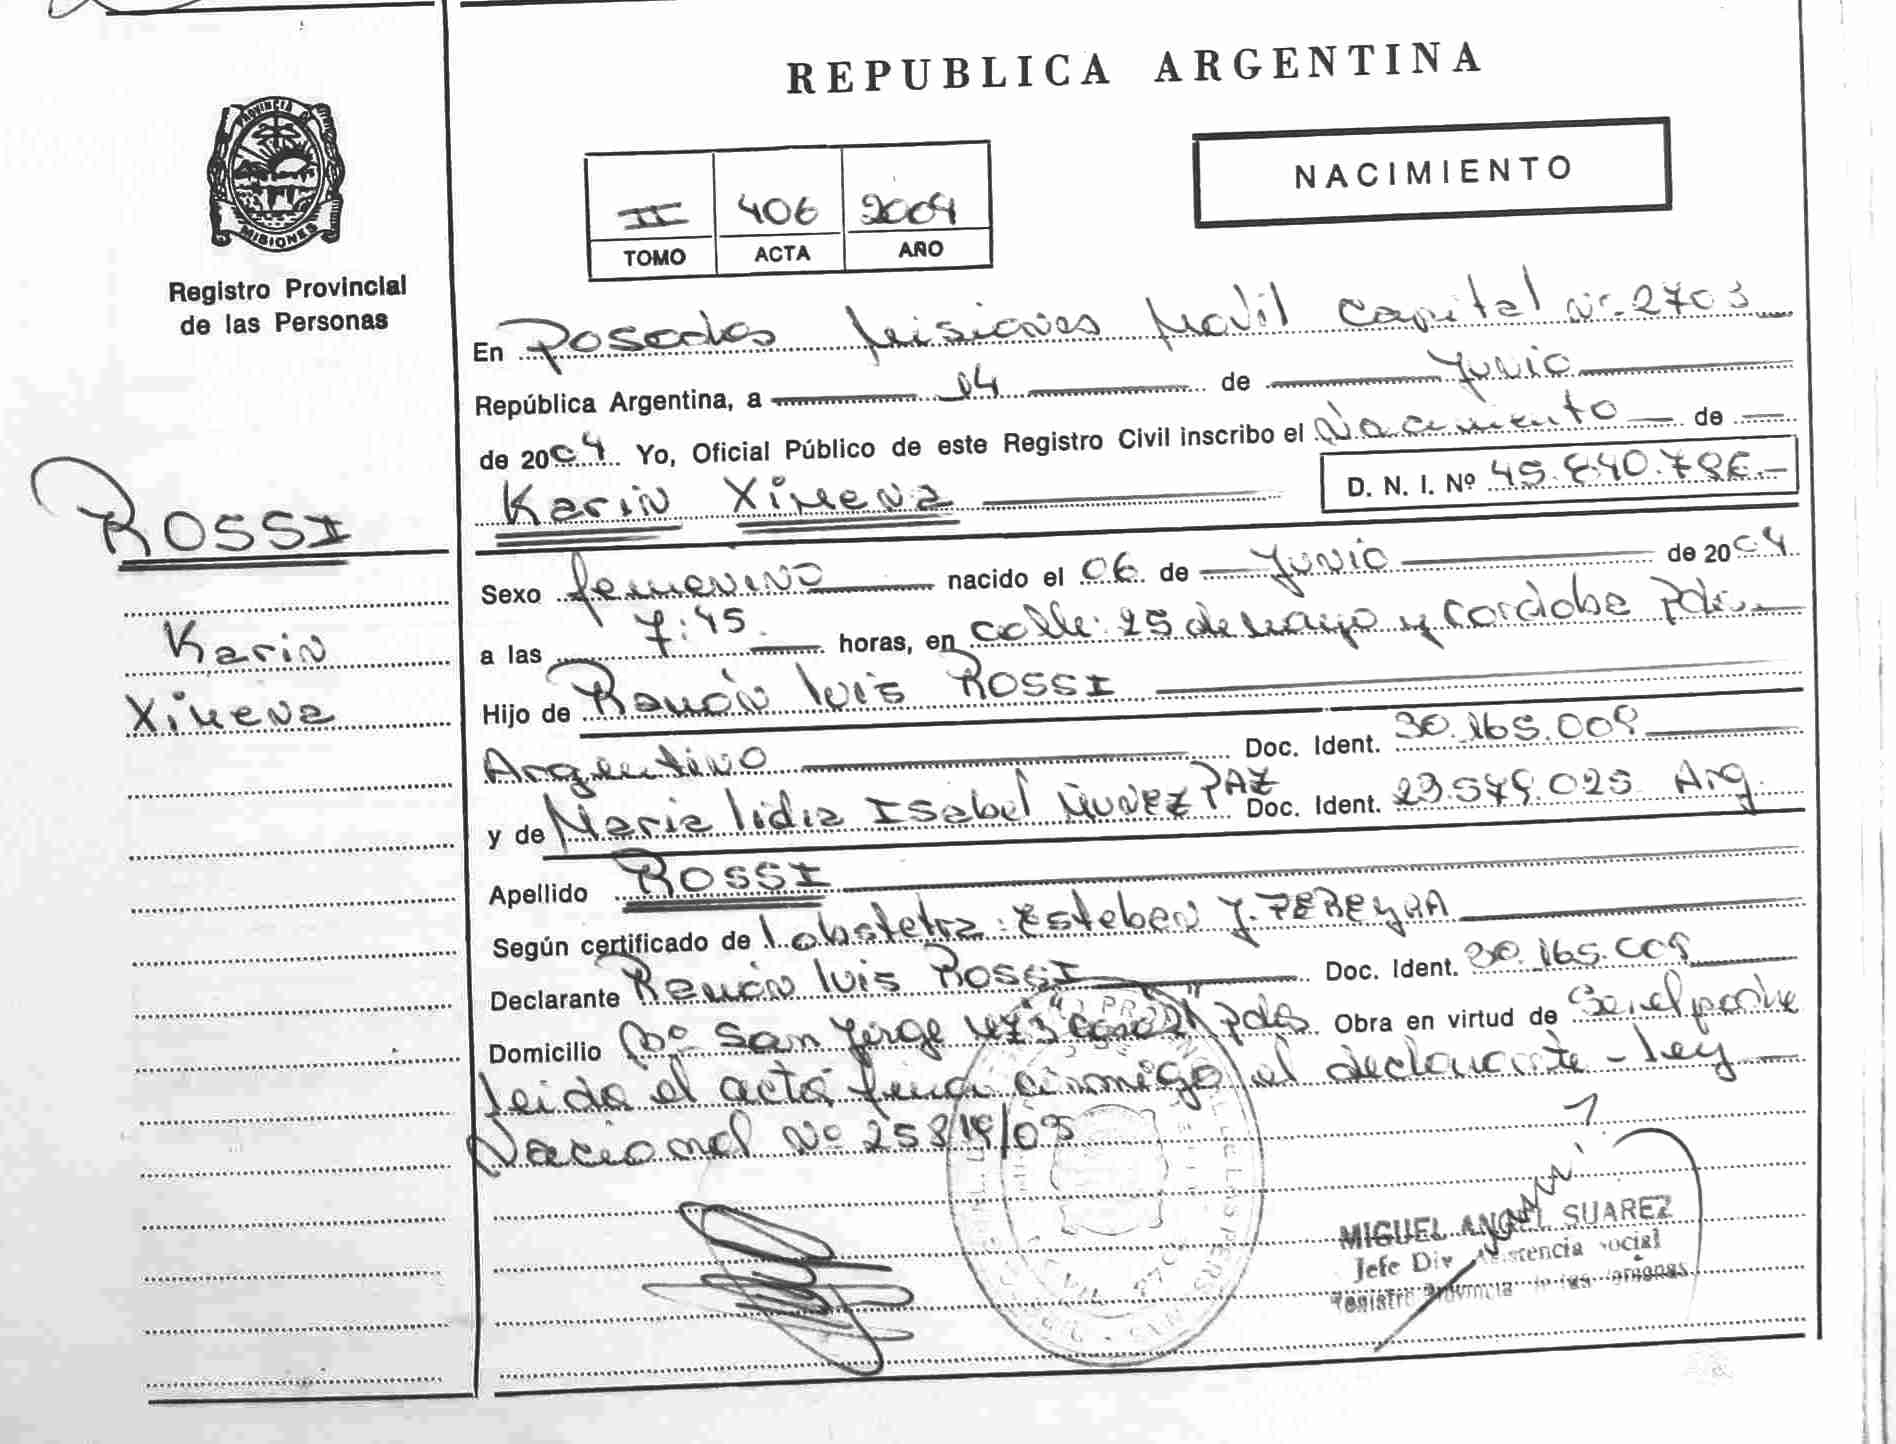 REPUBLICA ARGENTINA
NACIMIENTO
PROVINCIA DE
MISIONES
Registro Provincial
de las Personas
II 406 2004
TOMO ACTA AÑO
En Posadas Misiones Movil Capital Nº 2703
República Argentina, a 14 de Junio
de 2004 Yo, Oficial Público de este Registro Civil inscribo el Nacimiento de
Karin Ximena D. N. I. Nº 45.840.786.-
ROSSI
Karin
Ximena
Sexo femenino nacido el 06 de Junio de 2004
a las 7:45 horas, en calle: 25 de mayo y Cordoba Pdas.
Hijo de Ramón Luis ROSSI
Argentino Doc. Ident. 30.165.009
y de Maria Lidia Isabel ÑUNEZ PAZ Doc. Ident. 23.549.025 Arg.
Apellido ROSSI
Según certificado de Lobstetra: Esteben J. PEREYRA
Declarante Ramón Luis ROSSI Doc. Ident. 30.165.009
Domicilio Bº San Jorge 473 Pdas Obra en virtud de Ser el padre
leida el acta firma conmigo el declarante - Ley
Nacional Nº
MIGUEL ANGEL SUAREZ
Jefe Div Asistencia Social
Registro Provincial de las Personas